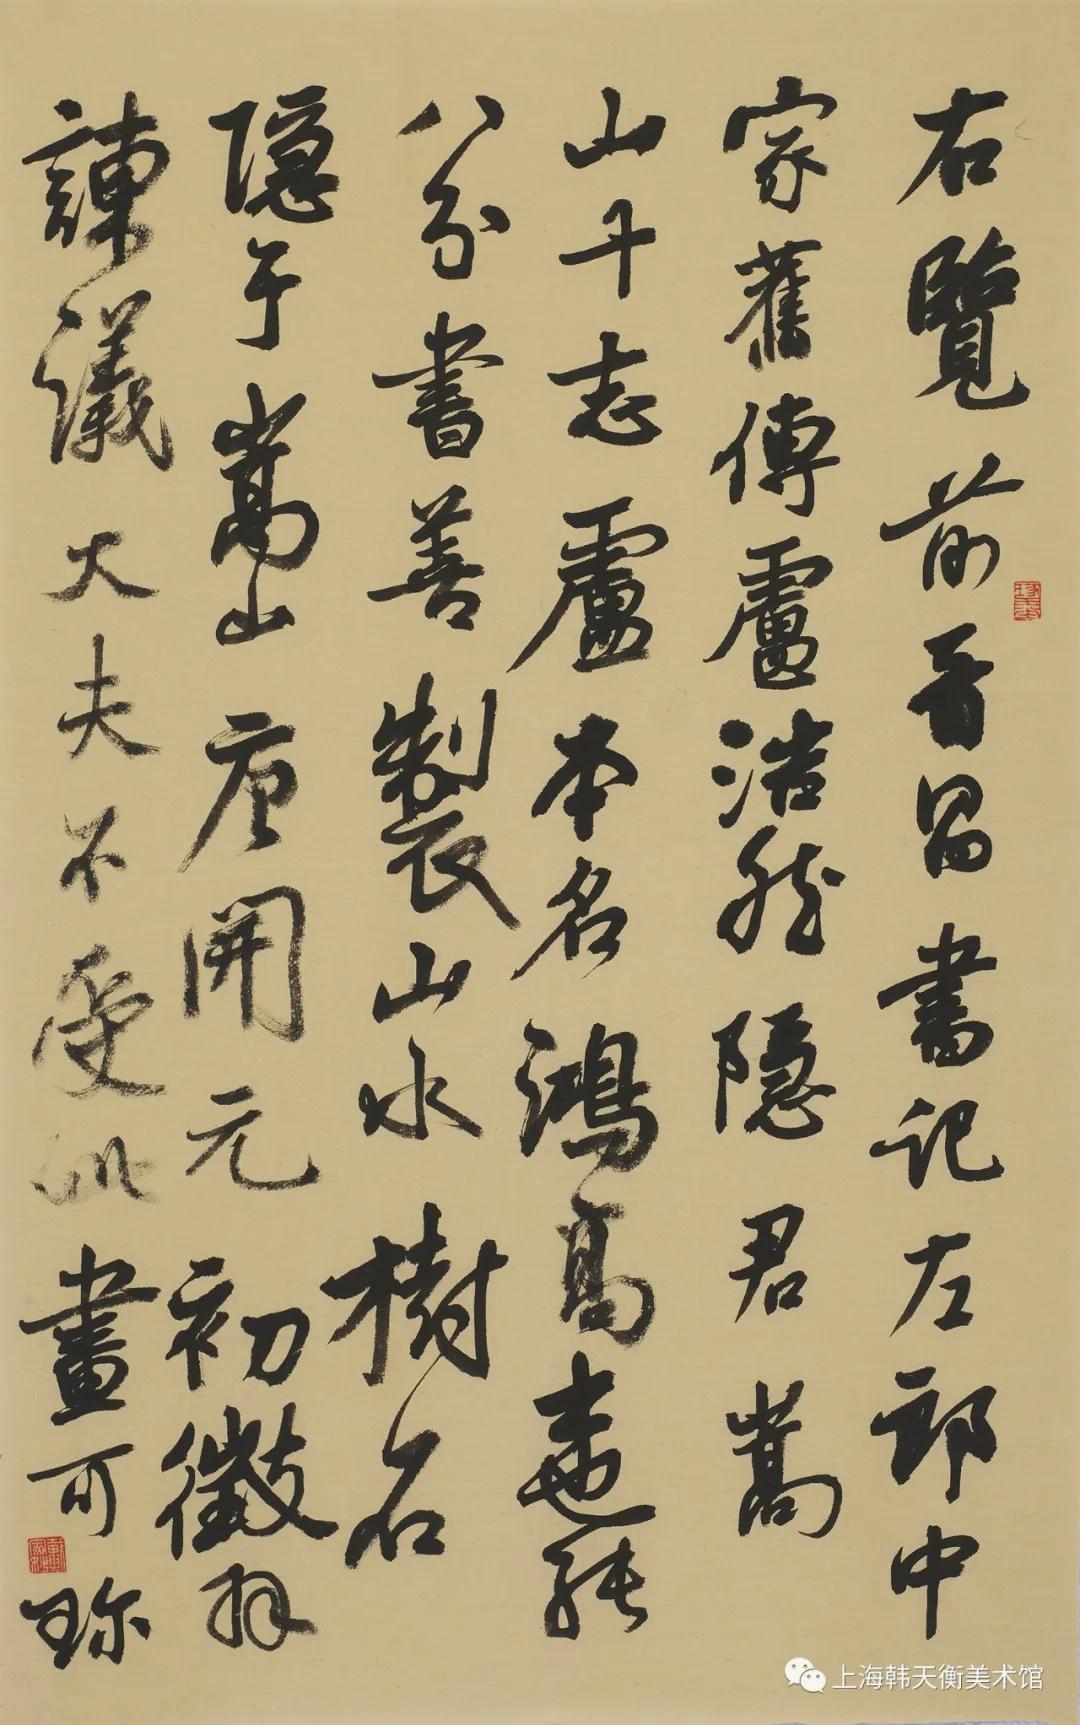 右覽前晋昌書記左郎中
家舊傳盧浩然隱君嵩
山十志盧本名鴻高士也能
八分書善製山水樹石
隱于嵩山唐開元初徵拜
諫議大夫不受此畫可珎
上海韩天衡美术馆